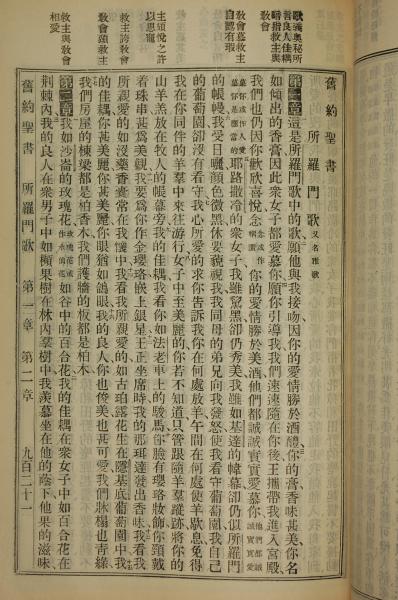 歌義奧秘所
羅門
敎會
舊約聖書
所羅門歌 又名雅歌
第一章 這是所羅門歌中的歌願他與我接吻因你的愛情勝於酒醴你的膏香味甚美你名
如傾出的香膏因此衆女子都愛慕你願你引導我我們速速隨在你後王攜帶我進入宮殿
我們也仍因你歡悅喜樂念你的愛情勝於美酒他們都誠誠實實愛慕你
耶路撒冷的衆女子我雖黧黑卻仍秀美我雖如基達的帷幕卻仍似所羅門
的帳幔我受日曬顔色微黑休要藐視我我同母的弟兄向我發怒使我看守葡萄園我自己
的葡萄園卻沒有看守我心所愛的求你告訴我你在何處放羊午間在何處使羊歇息免得
我在你同伴的羊羣中來往游行女子中至美麗的你若不知道只管跟隨羊羣蹤跡將你的
山羊羔放在牧人的帳幕旁我的佳耦我看你如法老車上的駿馬你臉有瓔珞妝飾你頸戴
着珠串甚爲美觀我要爲你作金瓔珞嵌上銀星王正坐席時我的那珥達發出香味我看我
所親愛的如沒藥香囊常在我懷中我看我所親愛的如古珀露花生在隱基底葡萄園中我
的佳耦你甚美麗你甚美麗你眼猶如鴿眼我的良人你也俊美也甚可愛我們牀榻也靑綠
我們房屋的棟梁都是柏香木我們護牆的板都是柏木
第二章 我如沙崙的玫瑰花如谷中的百合花我的佳耦在衆女子中如百合花在
荆棘內我的良人在衆男子中如蘋果樹在林內羣樹中我羨慕坐在他的蔭下他果的滋味
舊約聖書 所羅門歌 第一章 第二章 九百二十一
敎會慕救主
自認有瑕
主顯悅之許
以恩寵
救主誇敎會
敎會頌救主
救主與敎會
相愛